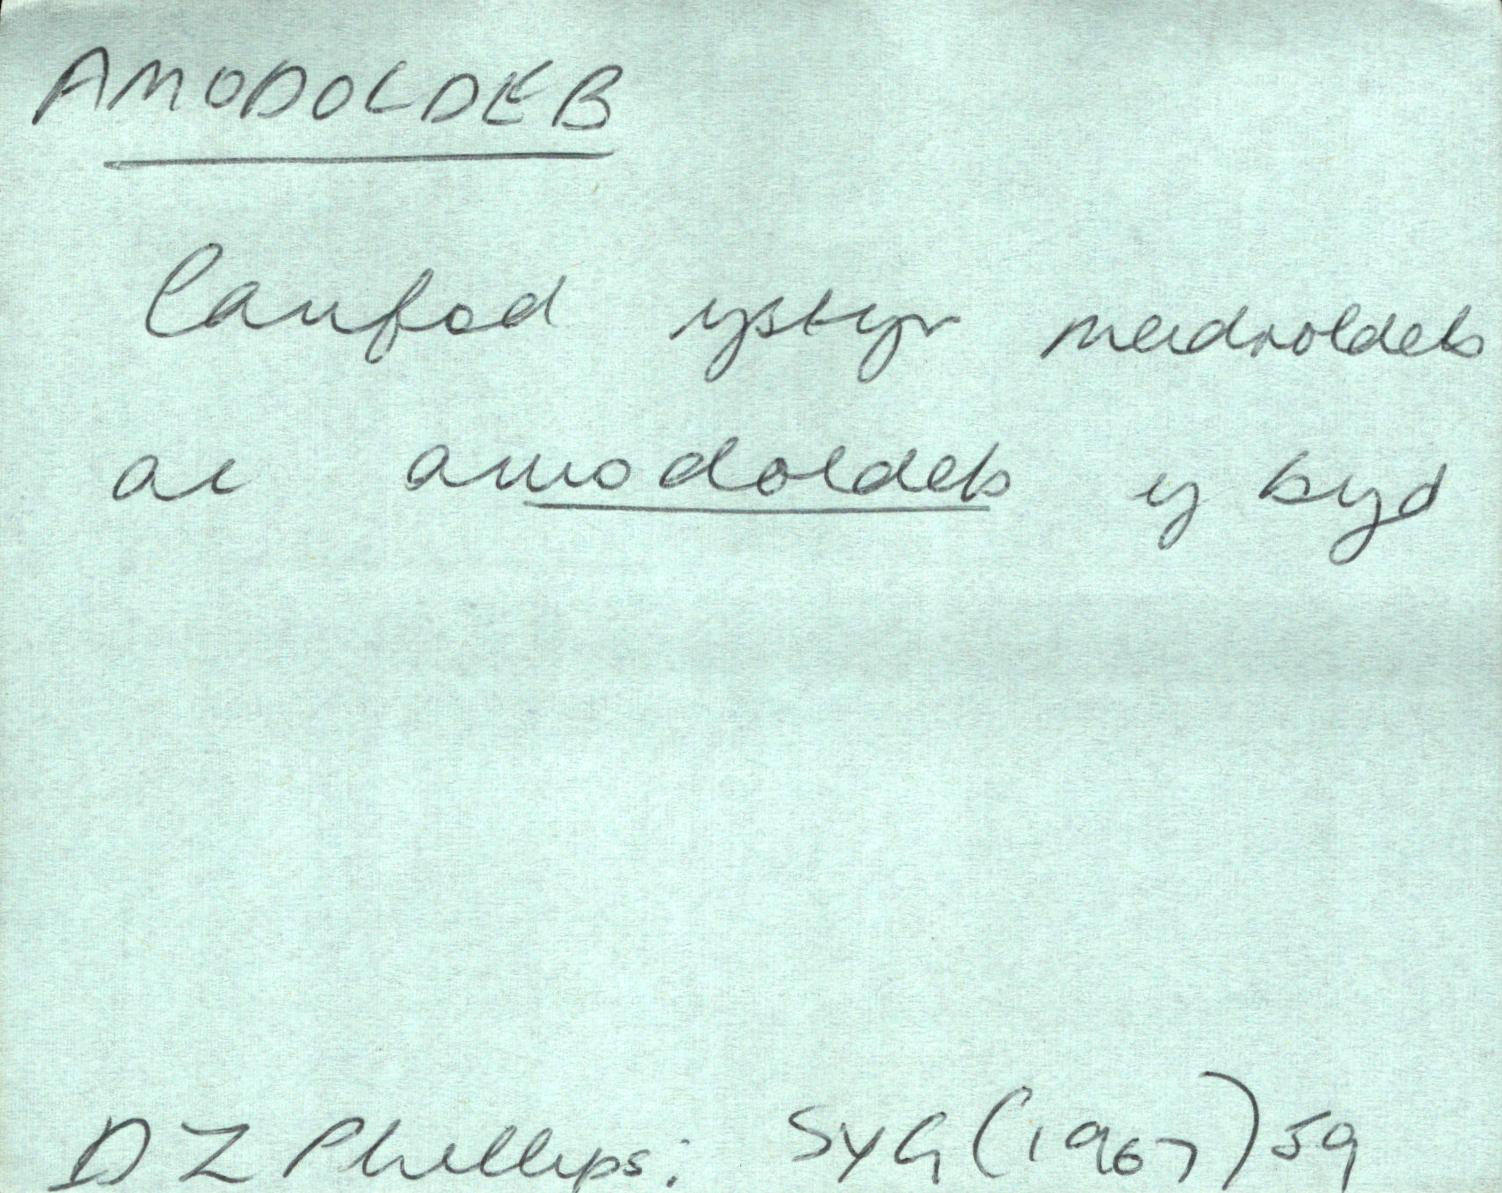 AMODOLDEB
Canfod ystyr meidroldeb
ac amodoldeb y byd
D Z Phillips: SyG (1967) 59